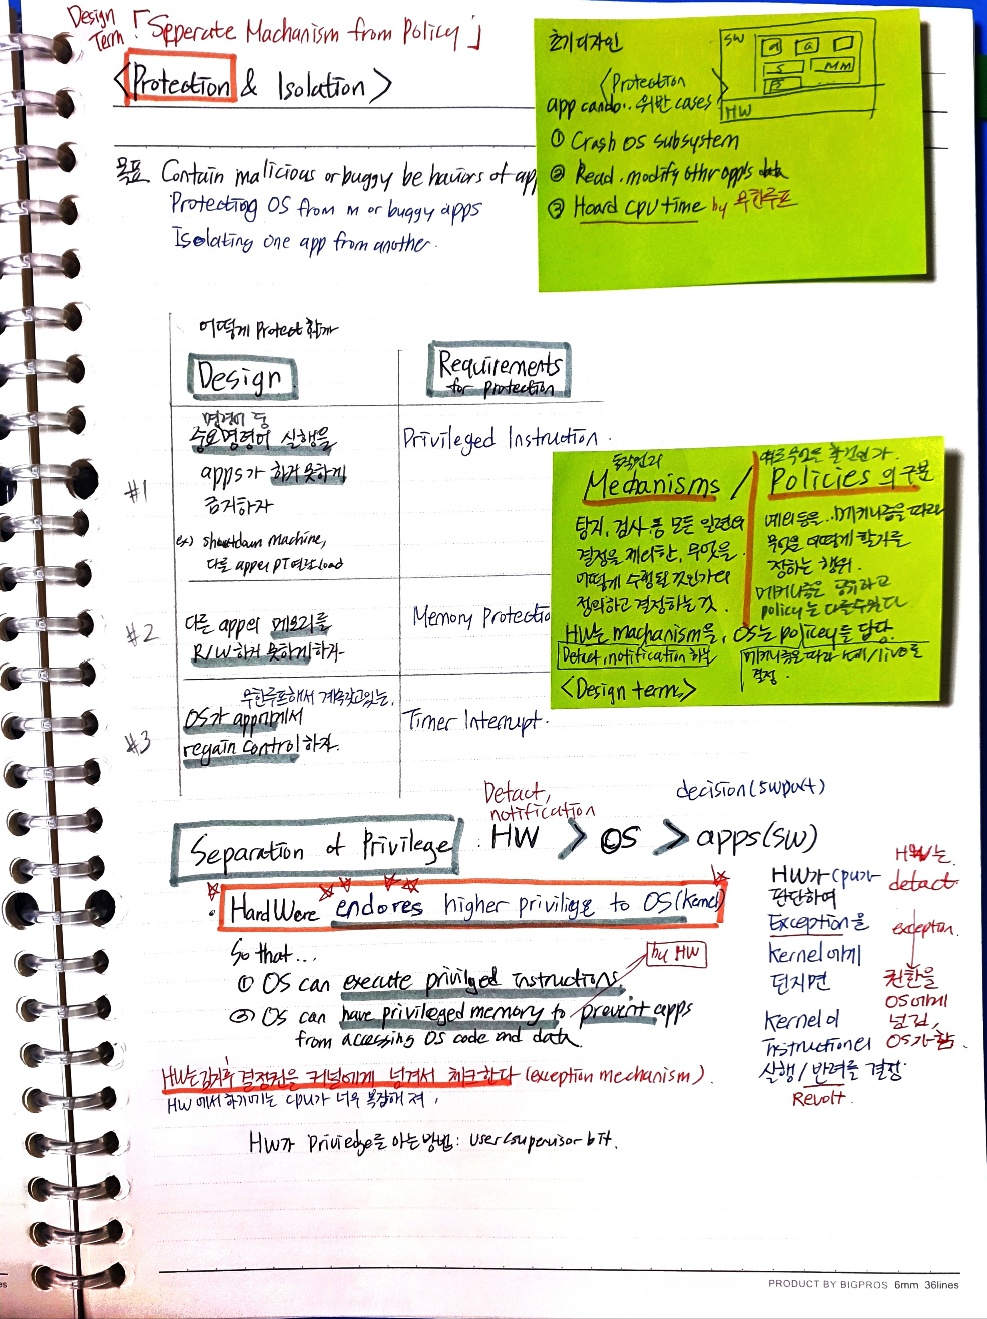 Design
Term 「Seperate Mechanism from Policy」
<Protection & Isolation>
목표 Contain malicious or buggy behaviors of app
Protecting OS from m or buggy apps
Isolating one app from another.
초기 디자인
SW
a
a
S
MM
FS
HW
<Protection>
app can do.. 위반 cases
① Crash OS subsystem
② Read. modify othr app's data
③ Hoard CPU time by 무한루프
어떻게 Protect 할까
Design
Requirements
for protection
#1
명령어 중
중요명령어 실행을
apps가 하지 못하게
금지하자
ex) shoutdown machine,
다른 app의 PT 에 load
Privileged Instruction.
#2
다른 app의 메모리를
R/W하지 못하게 하자-
Memory Protectio
#3
무한루프해서 계속갖고있는,
OS가 app에게서
regain control 하자.
Timer Interrupt.
동작인과
Mechanisms /
탐지, 검사 등 모든 일련의
결정을 제외한, 무엇을
어떻게 수행될 것인가의
정의하고 결정하는 것.
Policies 의 구분
예외 등을... 메커니즘을 따라
무엇을 어떻게 할거를
정하는 행위.
메커니즘은 공유하고
policy는 다를수 있다
HW는 machanism을, OS는 policey를 담당.
Detact, notification 하고
메커니즘을 따라 kill/live를
결정.
<Design terms>
Separation of Privilege
Detact,
notification
decision (SW part)
: HW > OS > apps(SW)
· HardWere endores higher privilige to OS (kernel)
So that...
① OS can execute privilged instructions.
② OS can have privileged memory to prevent apps
from accessing OS code and data.
by HW
HW는 감지후 결정권을 커널에게 넘겨서 체크한다 (exception mechanism).
HW에서 하기에는 CPU가 너무 복잡해 져,
HW가 Priviedge를 아는 방법: User/supervisor bit.
HW가 (CPU가
판단하여
Exception을
kernel에게
던지면
kernel이
Instruction의
실행/반려를 결정.
Revolt.
HW는
detact
exception.
권한을
OS에게
넘김,
OS가 함.
PRODUCT BY BIGPROS 6mm 36lines